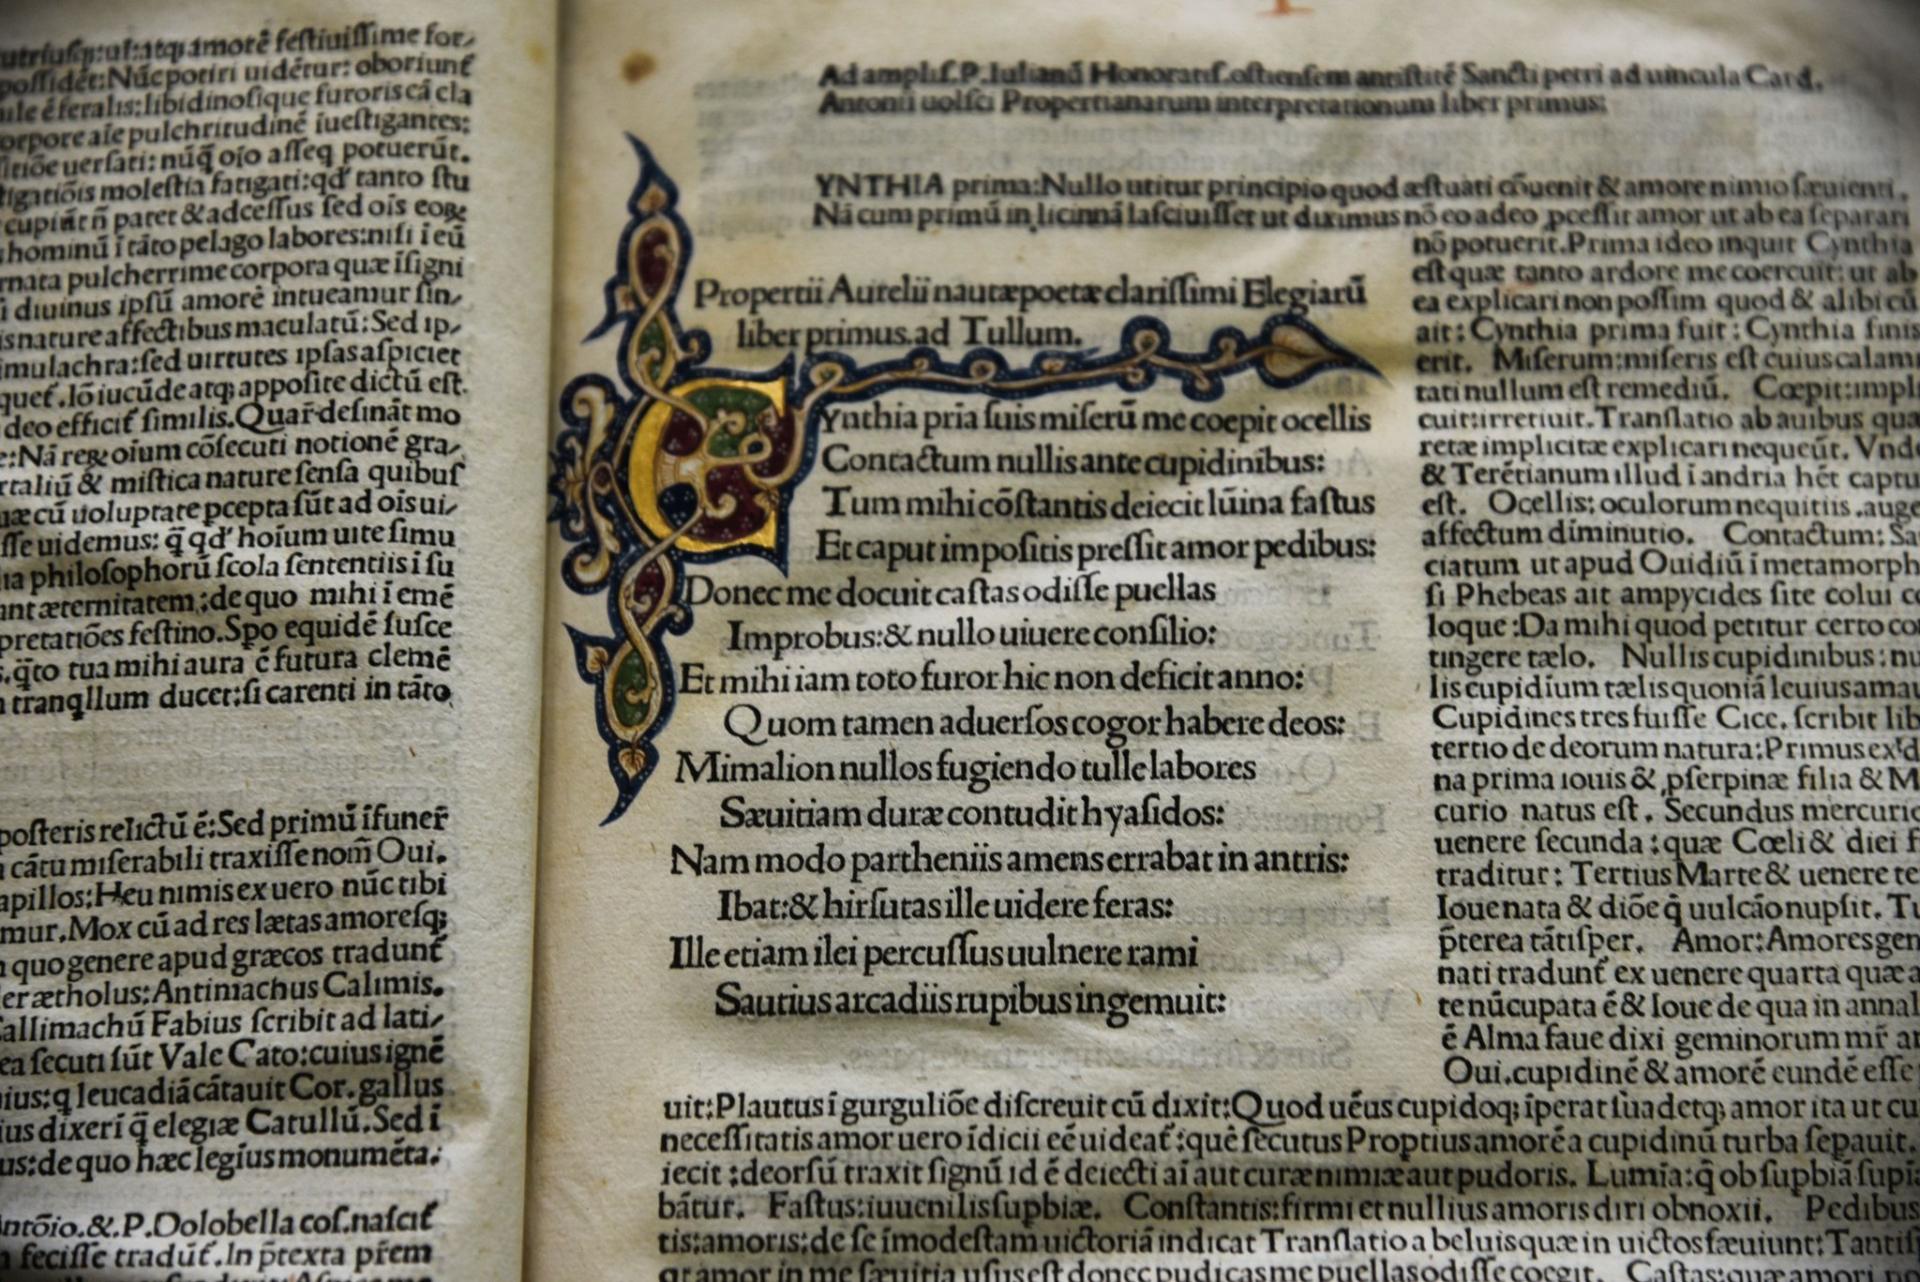 possidēt:Nūc potiri uidētur: oboriunt̄
ē feralis:libidinosique furoris cā cla
aīe pulchritudinē īuestigantes;
uersati: nūq̄ oīo asseq potuerūt.
molestia fatigati:qd' tanto stu
cupiūt n̄ patet & adcessus sed oīs eoꝝ
hominū ī tāto pelago labores:nisi ī eū
pulcherrime corpora quæ īsigni
diuinus ipsū amorē intueamur sin/
affectibus maculatū: Sed ip/
sed uirtutes ipsas aspiciet
Iō iucūde atq; apposite dictū est.
deo efficit̄ similis.Quar̄ desināt mo
Nā reꝝ oium cōsecuti notionē gra/
& mistica nature sensa quibus
cū uoluptate pcepta sūt ad oīs ui/
uidemus: q̄ qd' hoīum uite simu
philosophorū scola sententiis ī su
æternitatem;de quo mihi ī emē
festino.Spo equidē susce
q̄to tua mihi aura ē futura clemē
tranqllum ducet;si carenti in tāto
posteris relictū ē:Sed primū ī funer̄
cātu miserabili traxisse nom̄ Oui.
Heu nimis ex uero nūc tibi
Mox cū ad res lætas amoresq;
quo genere apud græcos tradunt̄
Antimachus Calimis.
Fabius scribit ad lati/
secuti sūt Vale Cato:cuius ignē
q leucadiā cātauit Cor.gallus
dixerī q̄ elegiæ Catullū.Sed ī
de quo hæc legīus monumēta:
&.P.Dolobella cos.nascit̄
fecisse tradūt̄.In p̄texta pr̄em
Ad amplis.P.Iulianū Honoratis.ostiensem antistitē Sancti petri ad uincula Card.
Antonii uolsci Propertianarum interpretationum liber primus:
YNTHIA prima:Nullo utitur principio quod æstuati cōuenit & amore nimio sæuienti.
Nā cum primū in licinnā lasciuisset ut diximus nō eo adeo pcessit amor ut ab ea separari
nō potuerit.Prima ideo inquit Cynthia
est quæ tanto ardore me coercuit: ut ab
ea explicari non possim quod & alibi cū
ait: Cynthia prima fuit: Cynthia finis
erit. Miserum:miseris est cuius calami
tati nullum est remediū. Cœpit:impli
cuit:irretiuit.Translatio ab auibus quæ
retæ implicitæ explicari nequeūt. Vnde
& Terētianum illud ī andria hēt captus
est. Ocellis: oculorum nequitiis.auget
affectum dīminutio. Contactum: Sau
ciatum ut apud Ouidiū ī metamorph
si Phebeas ait ampycides site colui
loque:Da mihi quod petitur certo
tingere tælo. Nullis cupidinibus: nul
lis cupidīum tælis quoniā
Cupidines tres fuisse Cice. scribit lib
tertio de deorum natura:Primus
na prima iouis & pserpinæ filia & Mer
curio natus est. Secundus mercurio
uenere secunda: quæ Cœli & diei
traditur: Tertius Marte & uenere
Ioue nata & diōe q̄ uulcāo nupsit.
p̄terea tātisper. Amor:Amores gem
nati tradunt̄ ex uenere quarta quæ
te nūcupata ē & Ioue de qua in annal
ē Alma faue dixi geminorum mr̄
Oui.cupidinē & amorē eundē esse
Propertii Aurelii nautæ poetæ clarissimi Elegiarū
liber primus.ad Tullum.
CYnthia pria suis miserū me coepit ocellis
Contactum nullis ante cupidinibus:
Tum mihi cōstantis deiecit lūina fastus
Et caput impositis pressit amor pedibus:
Donec me docuit castas odisse puellas
Improbus:& nullo uiuere consilio:
Et mihi iam toto furor hic non deficit anno:
Quom tamen aduersos cogor habere deos:
Mimalion nullos fugiendo tulle labores
Sæuitiam duræ contudit hyasidos:
Nam modo partheniis amens errabat in antris:
Ibat:& hirsutas ille uidere feras:
Ille etiam ilei percussus uulnere rami
Sautius arcadiis rupibus ingemuit:
uit:Plautus ī gurguliōe discreuit cū dixit:Quod uēus cupidoq; īperat suadetq; amor ita ut cu
necessitatis amor uero īdicii eē uideat̄:quē secutus Proptius amorē a cupidinū turba sepauit.
iecit:deorsū traxit signū id ē deiecti aī aut curæ nimiæ aut pudoris. Lumīa:q̄ ob supbiā
bātur. Fastus:iuuenilis supbiæ. Constantis:firmi et nullius amoris diri obnoxii. Pedibus
tis:amoris:de se īmodestam uictoriā indicat Translatio a beluis quæ in uictos sæuiunt:
amor in me sæuitia usus est donec pudicas me puellas odisse coegit. Castas:quæ amori